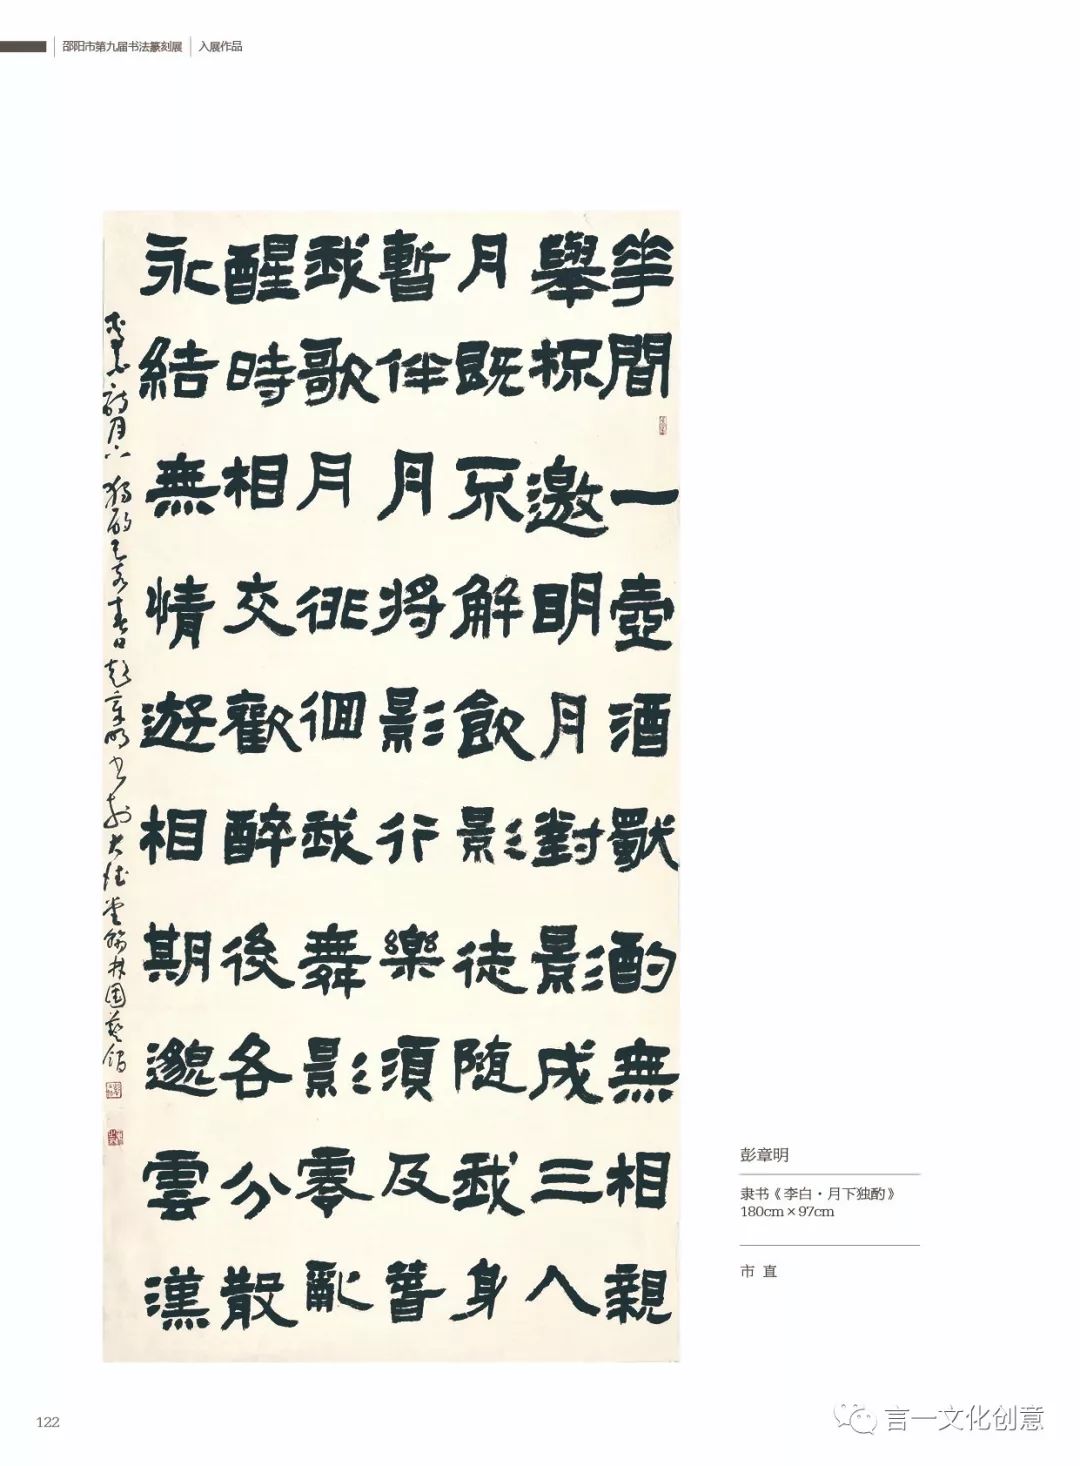 邵阳市第九届书法篆刻展 入展作品
華間一壺酒獨酌無相親
舉杯邀明月對影成三人
月既不解飲影徒隨我身
暫伴月將影行樂須及春
我歌月徘徊我舞影零亂
醒時相交歡醉後各分散
永結無情遊相期邈雲漢
李白詩月下獨酌己亥春日彭章明书於大德堂翰林園藝館
彭章明
隶书《李白·月下独酌》
180cm×97cm
市 直
122
言一文化创意